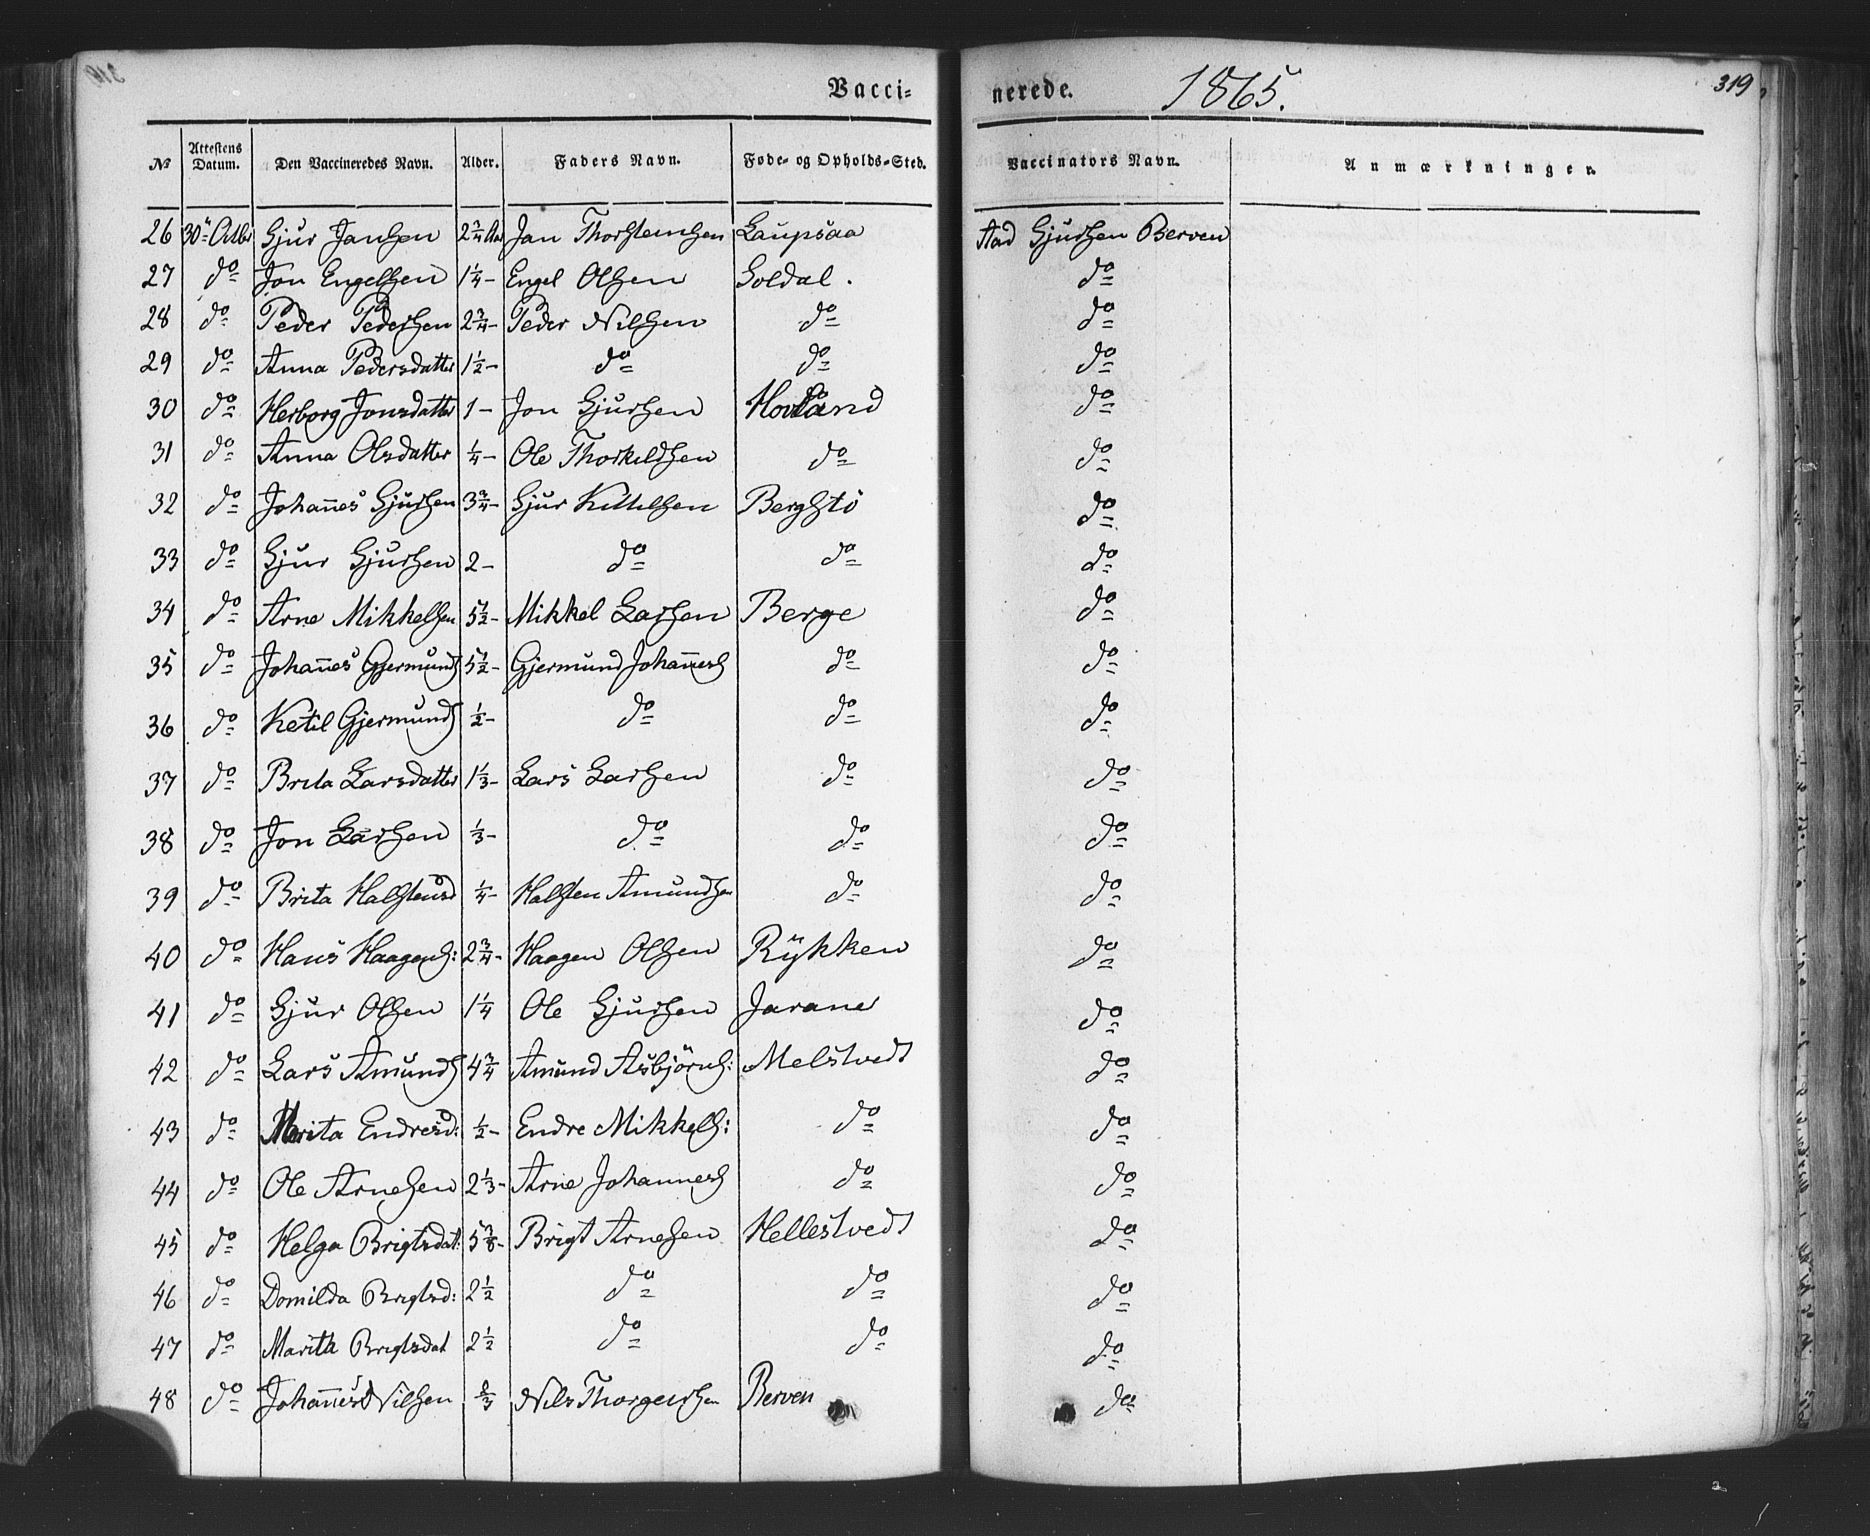 Vacci- nerede. 1865. 319
№ Attestens Datum. Den Vaccineredes Navn. Alder. Faders Navn. Føde- og Opholds-Sted. Vaccinators Navn. Anmærkninger.
26 30te Octbr Sjur Jansen 2 3/4 Aar Jan Thorstensen Laupsaa Aad Sjursen Berven
27 do Jon Engelsen 1 1/4 - Engel Olsen Soldal. do
28 do Peder Pedersen 2 3/4 - Peder Nilsen do do
29 do Anna Pedersdatter 1 1/2 - do do do
30 do Herborg Jonsdatter 1 - Jon Sjursen Hovland do
31 do Anna Olsdatter 1/4 - Ole Thorkildsen do do
32 do Johannes Sjursen 3 3/4 - Sjur Kittilsen Bergstö do
33 do Sjur Sjursen 2 - do do do
34 do Arne Mikkelsen 5 1/2 - Mikkel Larsen Berge do
35 do Johannes Gjermunds 5 1/2 - Gjermund Johannes do do
36 do Ketil Gjermunds 1/2 - do do do
37 do Brita Larsdatter 1 1/3 - Lars Larsen do do
38 do Jon Larsen 1/3 - do do do
39 do Brita Halstensd 1/4 - Halsten Amundsen do do
40 do Hans Haagens: 2 3/4 - Haagen Olsen Rÿkken do
41 do Sjur Olsen 1 1/4 Ole Sjursen Jarane do
42 do Lars Amunds 4 3/4 Amund Asbjörns: Melstvedt do
43 do Marita Endresd: 1/2 - Endre Mikkels: do do
44 do Ole Arnesen 2 1/3 - Arne Johannes do do
45 do Helga Brigtsdat: 5 3/8 - Brigt Arnesen Hellestvedt do
46 do Domilda Brigtsd: 2 1/2 do do do
47 do Marita Brigtsdat 2 1/2 do do do
48 do Johannes Nilsen 2/3 Nils Thorgeirsen Berven do